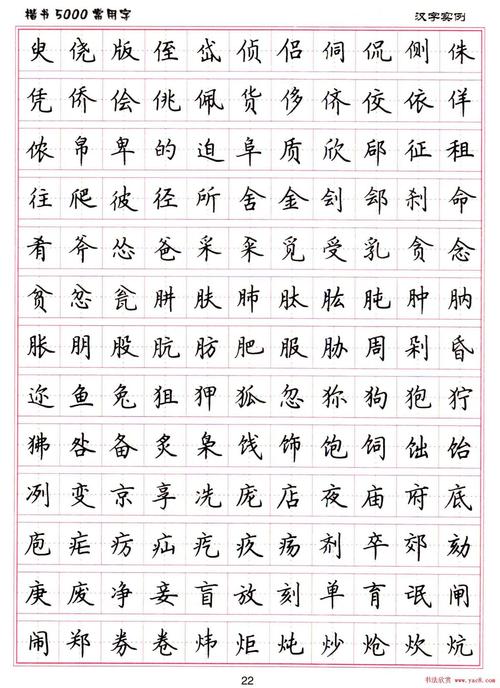 楷书5000常用字 汉字实例
臾侥版侄岱侦侣侗侃侧侏
凭侨侩佻佩货侈侪佼依佯
侬帛卑的迫阜质欣郈征租
往爬彼径所舍金刽郐刹命
肴斧怂爸采采觅受乳贪念
贫忿瓮肼肤肺肽肱肫肿肭
胀朋股肮肪肥服胁周剁昏
迩鱼兔狙狎狐忽狝狗狍狞
狒咎备炙枭饯饰饱饲饳饴
冽变京享冼庞店夜庙府底
庖疟疠疝疙疚疡剂卒郊劾
庚废净妾盲放刻单育氓闸
闹郑券卷炜炬炖炒炝炊炕
22
书法欣赏
www.yac8.com